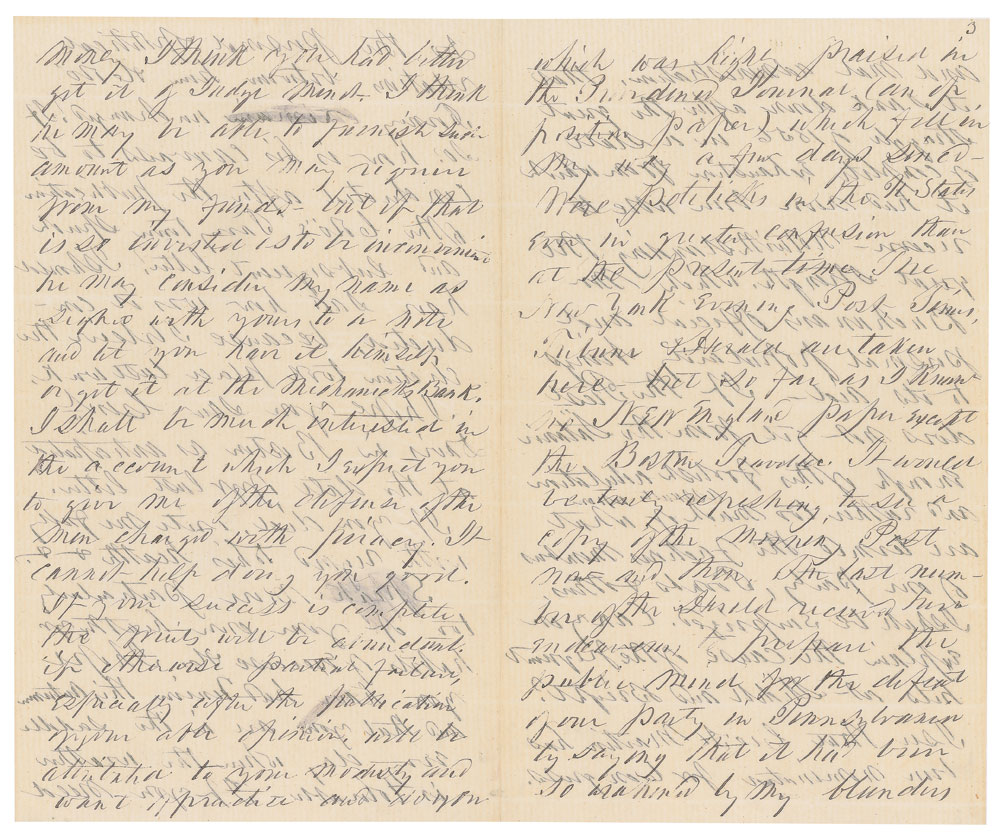 money I think you had better
get it of Judge Minot. I think
he may be able to furnish such
amount as you may require
from my funds – but if that
is so invested as to be inconvenient
he may consider my name as
signed with yours to a note
and let you have it himself
or get it at the Mechanicks Bank.
I shall be much interested in
the account which I expect you
to give me of the defense of the
men charged with piracy. It
cannot help doing you good.
If your success is complete
the fruits will be abundant.
if otherwise partial failure,
especially after the publication
of your able opinion, will be
attributed to your modesty and
want of practice and not on
3
which was highly praised in
the Providence Journal (an op
position paper) which fell in
my way a few days since –
Were politicks in the U. States
ever in greater confusion than
at the present time. The
New York Evening Post, Times,
Tribune & Herald are taken
here – but so far as I know
no New England paper except
the Boston Traveller. It would
be truly refreshing to see a
copy of the Morning Post
now and then. The last num-
ber of the Herald received here
endeavours to prepare the
public mind for the defeat
of our party in Pennsylvania
by saying that it had been
so weakened by my blunders